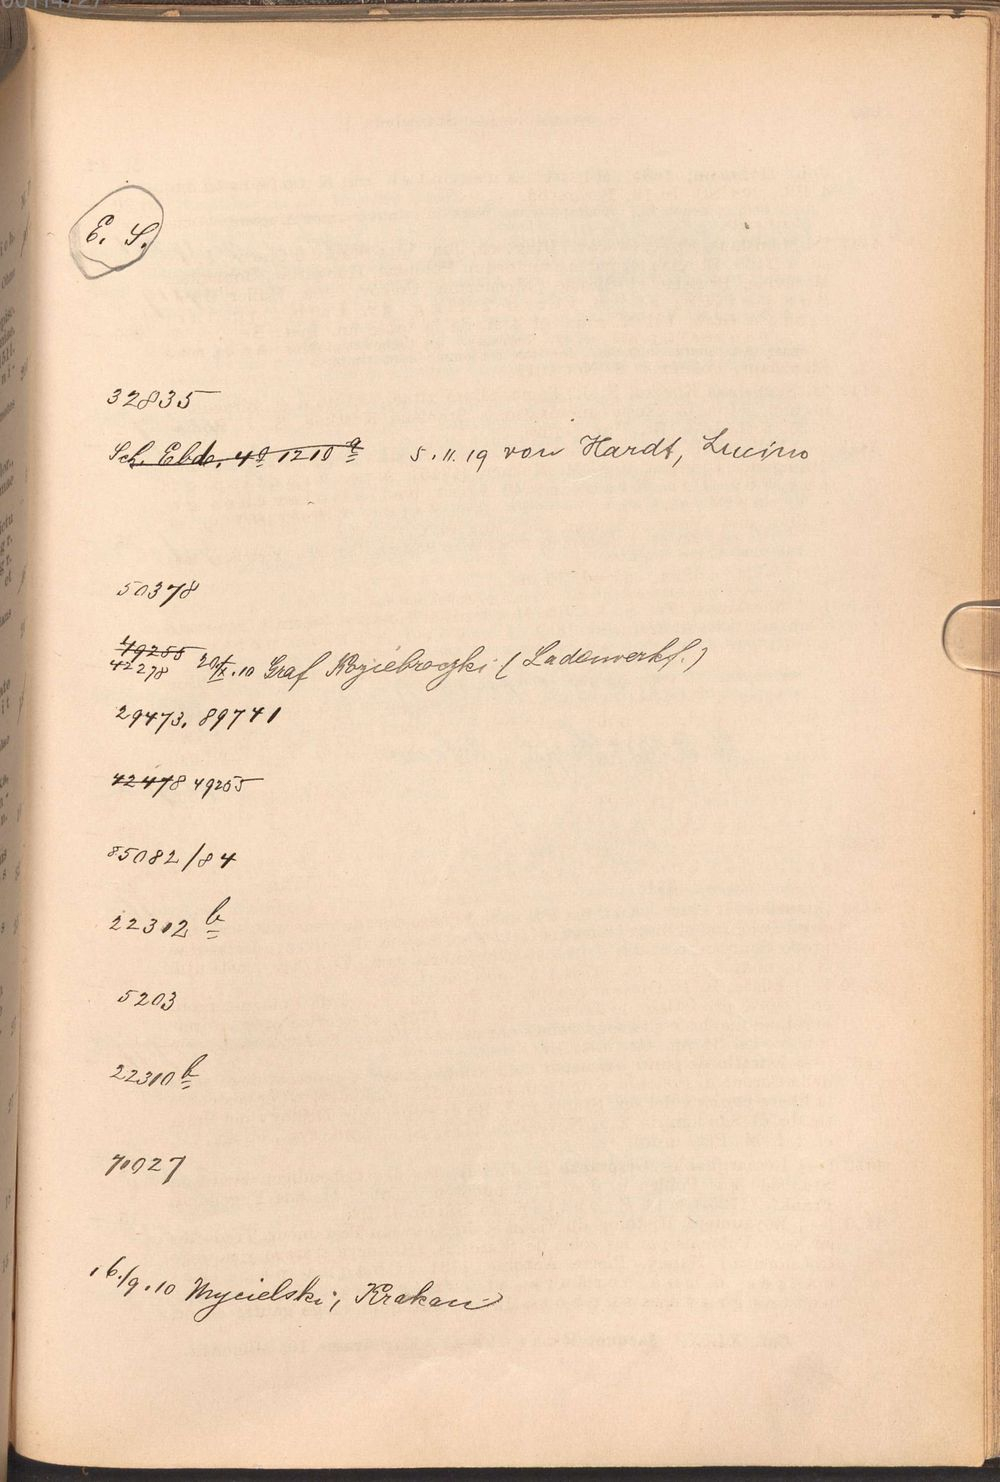 E. S.
32835
Sch. Ebde. 4º 1210 a 5.11.19 von Hardt, Lucino
50378
49255
42278 20/IX.10 Graf (Ladenverkf.)
29473. 89741
42478 49255
85082/84
22302 b
5203
22310 b
70027
16./9.10 Mycielski, Krakau